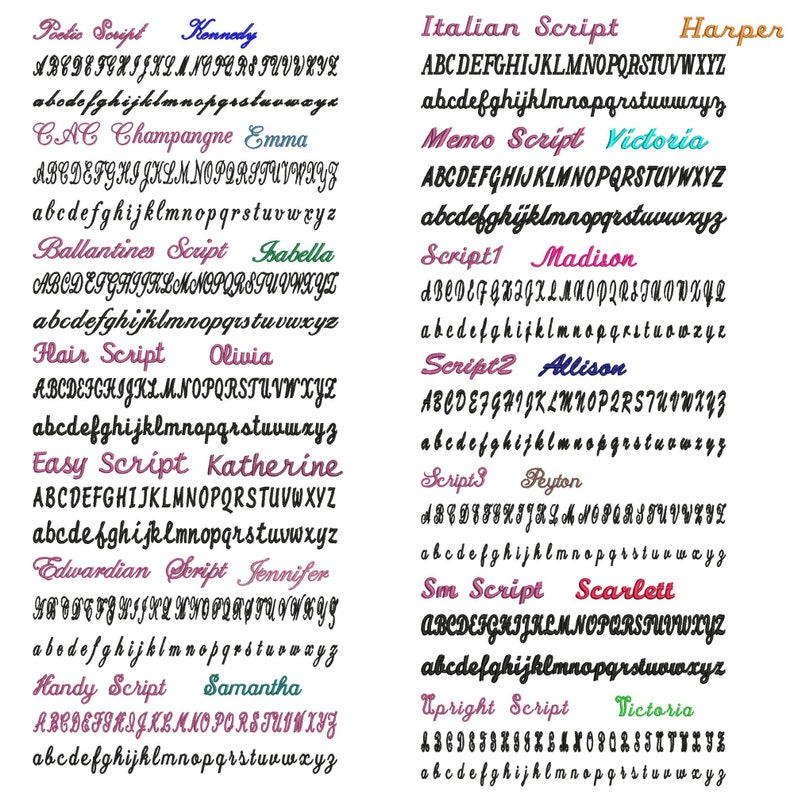 Poetic Script Kennedy
ABCDEFGHIJKLMNOPQRSTUVWXYZ
abcdefghijklmnopqrstuvwxyz
CAC Champangne Emma
ABCDEFGHIJKLMNOPQRSTUVWXYZ
abcdefghijklmnopqrstuvwxyz
Ballantines Script Isabella
ABCDEFGHIJKLMNOPQRSTUVWXYZ
abcdefghijklmnopqrstuvwxyz
Flair Script Olivia
ABCDEFGHIJKLMNOPQRSTUVWXYZ
abcdefghijklmnopqrstuvwxyz
Easy Script Katherine
ABCDEFGHIJKLMNOPQRSTUVWXYZ
abcdefghijklmnopqrstuvwxyz
Edwardian Script Jennifer
ABCDEFGHIJKLMNOPQRSTUVWXYZ
abcdefghijklmnopqrstuvwxyz
Handy Script Samantha
ABCDEFGHIJKLMNOPQRSTUVWXYZ
abcdefghijklmnopqrstuvwxyz
Italian Script Harper
ABCDEFGHIJKLMNOPQRSTUVWXYZ
abcdefghijklmnopqrstuvwxyz
Memo Script Victoria
ABCDEFGHIJKLMNOPQRSTUVWXYZ
abcdefghijklmnopqrstuvwxyz
Script1 Madison
ABCDEFGHIJKLMNOPQRSTUVWXYZ
abcdefghijklmnopqrstuvwxyz
Script2 Allison
ABCDEFGHIJKLMNOPQRSTUVWXYZ
abcdefghijklmnopqrstuvwxyz
Script3 Peyton
ABCDEFGHIJKLMNOPQRSTUVWXYZ
abcdefghijklmnopqrstuvwxyz
Sm Script Scarlett
ABCDEFGHIJKLMNOPQRSTUVWXYZ
abcdefghijklmnopqrstuvwxyz
Upright Script Victoria
ABCDEFGHIJKLMNOPQRSTUVWXYZ
abcdefghijklmnopqrstuvwxyz